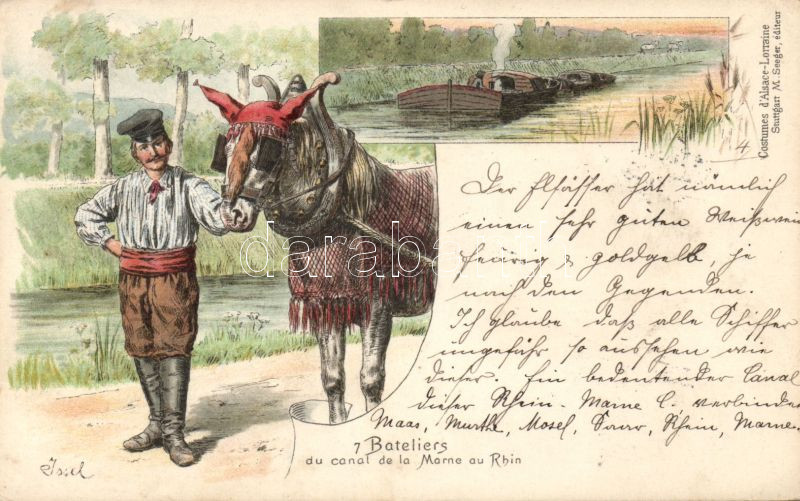 Costumes d'Alsace-Lorraine
Stuttgart M. Seeger, éditeur
4
Der Elsässer hat nämlich
einen sehr guten Weißwein
feurig & goldgelb, je
nach den Gegenden.
Ich glaube daß alle Schiffer
ungefähr so aussehen wie
dieser. Ein bedeutender Canal
dieser Rhein-Marne C. verbindet
Maas, Murthe, Mosel, Saar, Rhein, Marne.
darabanth
7 Bateliers
du canal de la Marne au Rhin